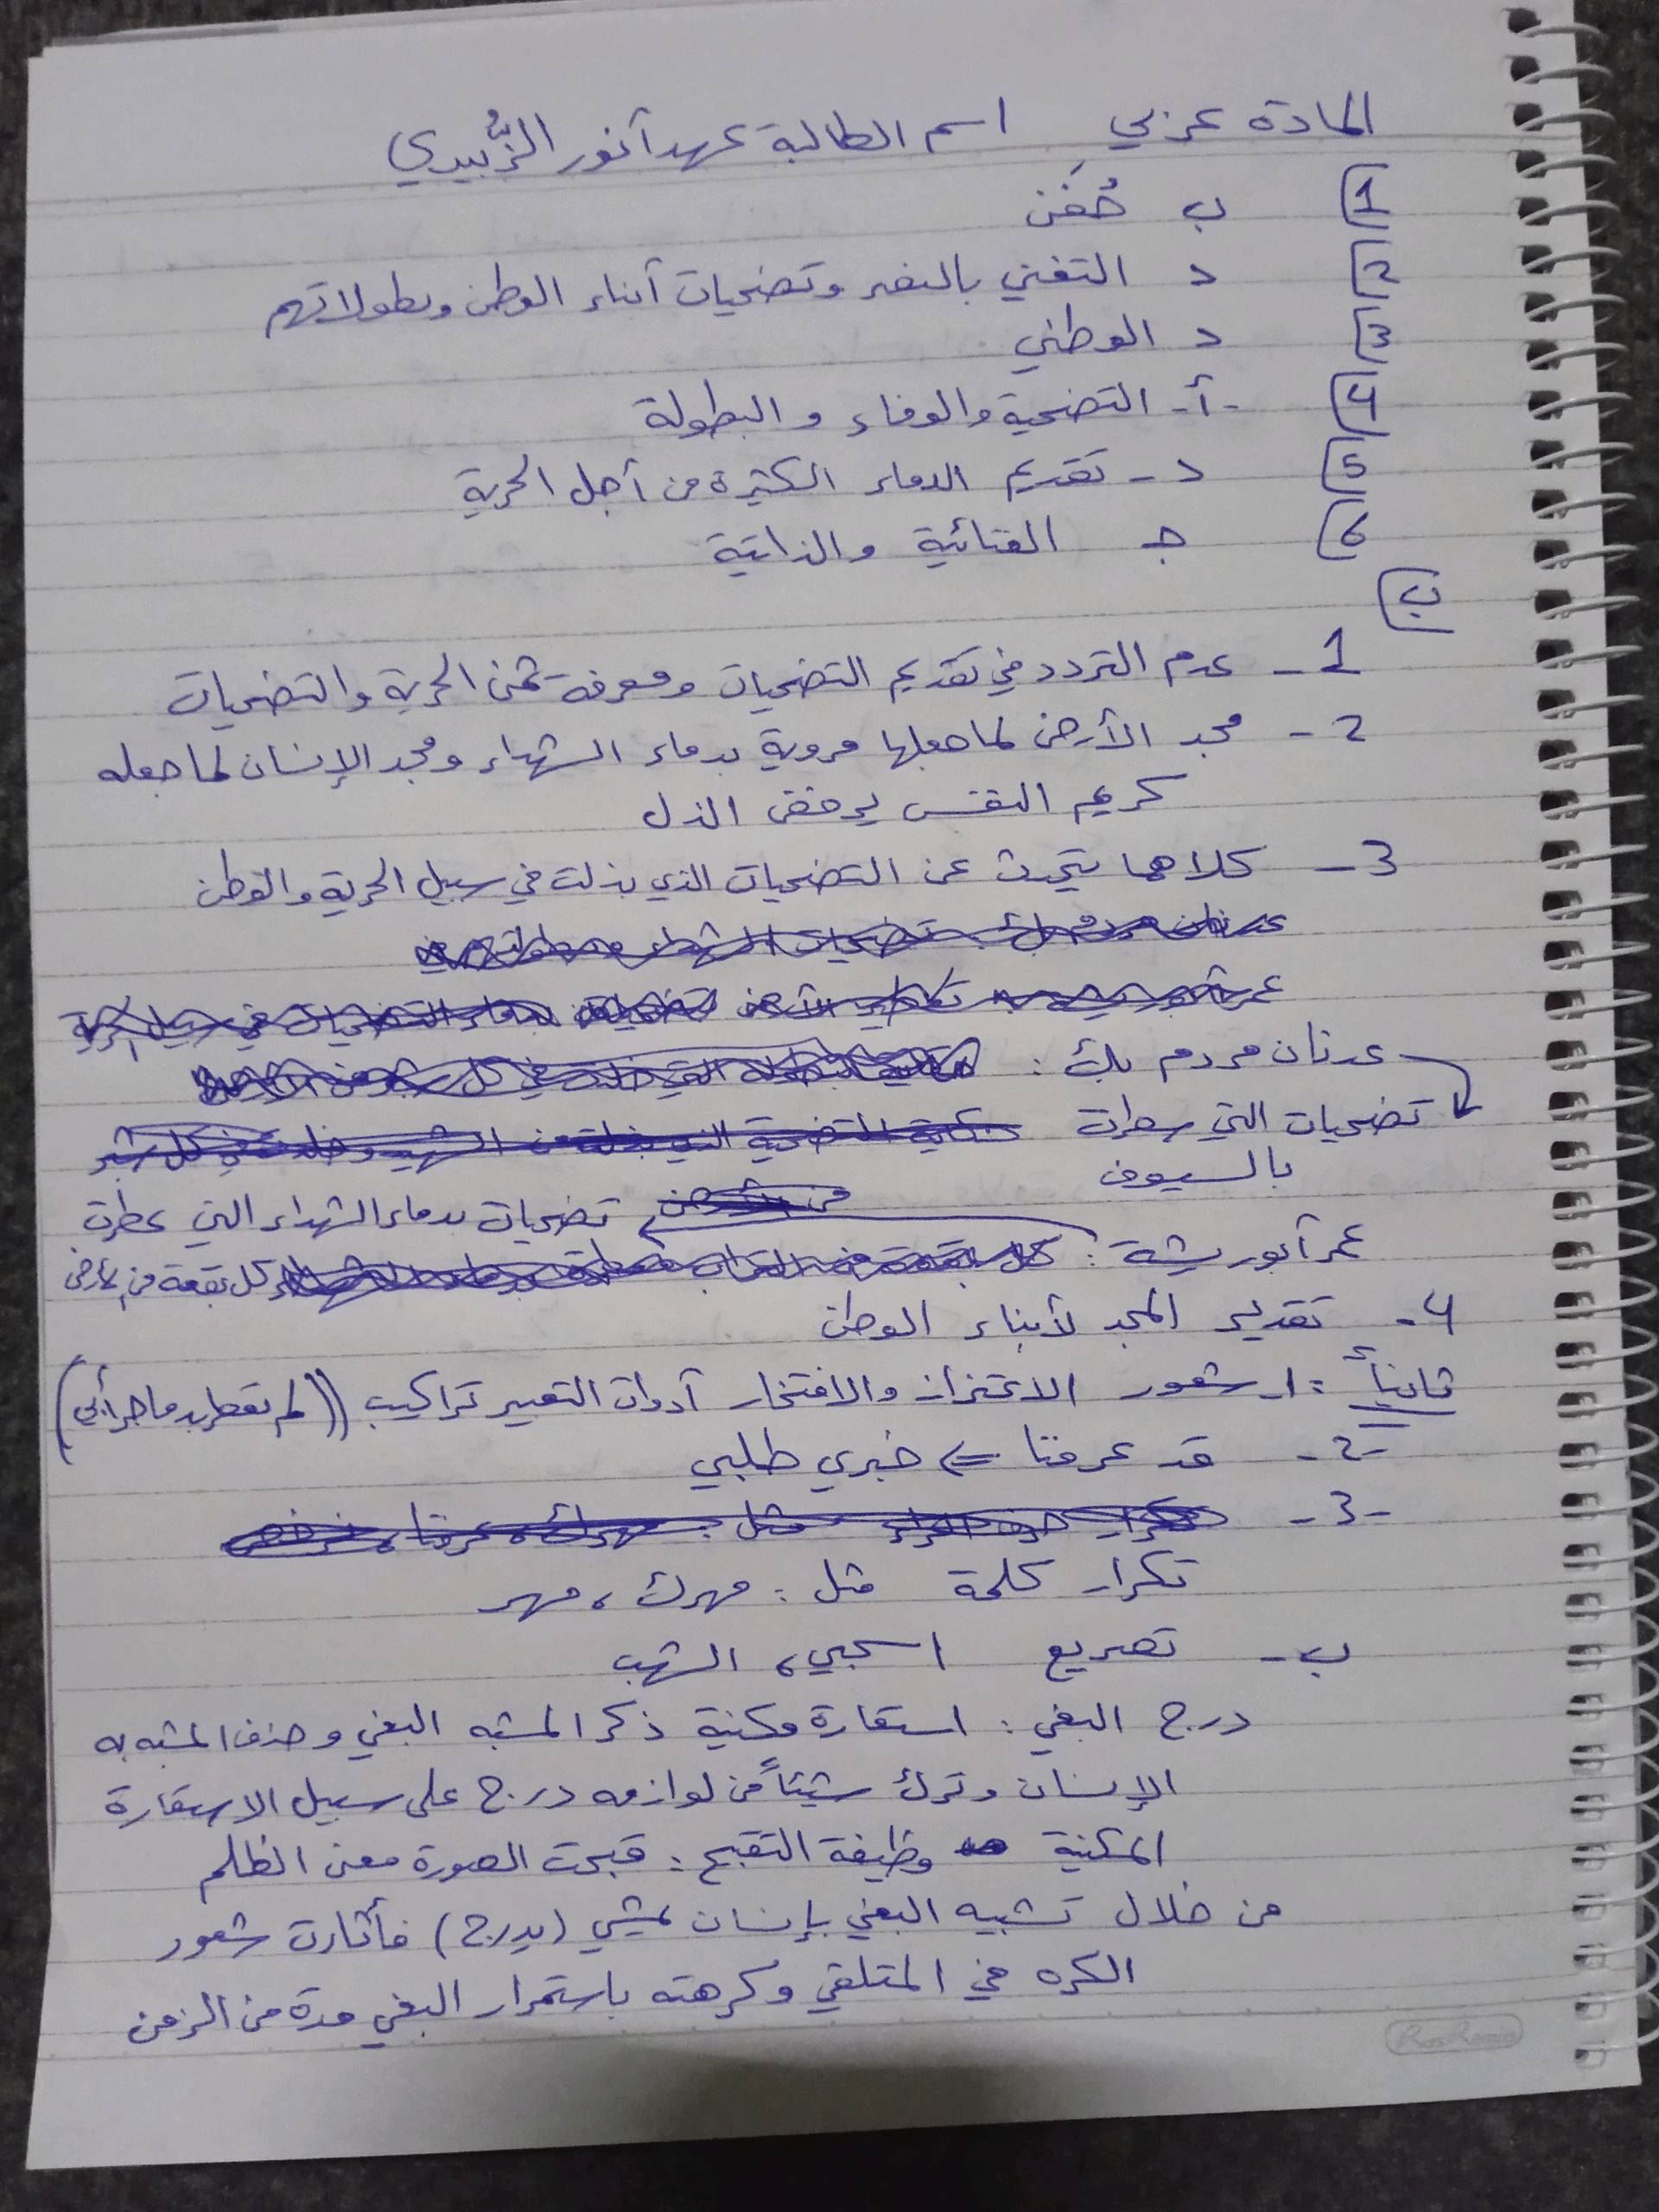 المادة عربي اسم الطالبة عهد أنور الزُّبيدي
1 ب خُفَن
2 د التغني بالنصر وتضحيات أبناء الوطن وبطولاتهم
3 د الوطني
4 -أ- التضحية والوفاء والبطولة
5 د - تقديم الدماء الكثيرة من أجل الحرية
6 جـ الغنائية والذاتية
ب
1 - عدم التردد في تقديم التضحيات ومعرفة ثمن الحرية والتضحيات
2 - مجد الأرض لما جعلها مروية بدماء الشهداء ومجد الإنسان لما جعله
كريم النفس يرفض الذل
3 - كلاهما يتحدث عن التضحيات الذي بذلت في سبيل الحرية والوطن
عدنان مردم بك :
تضحيات التي سطرت
بالسيوف
تضحيات بدماء الشهداء التي عطرت
عمر أبو ريشة : كل بقعة من الأرض
4 - تقدير المجد لأبناء الوطن
ثانياً : 1- شعور الاعتزاز والافتخار أدوات التعبير تراكيب ((لم تعطر بدما حر أبي))
-2- قد عرفنا => خبري طلبي
-3-
تكرار كلمة مثل : مهرك ، مهر
ب - تصريع اسحبي ، الشهب
درج البغي : استعارة مكنية ذكر المشبه البغي وحذف المشبه به
الإنسان وترك شيئاً من لوازمه درج على سبيل الاستعارة
المكنية وظيفة التقبيح : قبحت الصورة معنى الظلم
من خلال تشبيه البغي بإنسان يمشي (يدرج) فأثارت شعور
الكره في المتلقي وكرهته باستمرار البغي مدة من الزمن